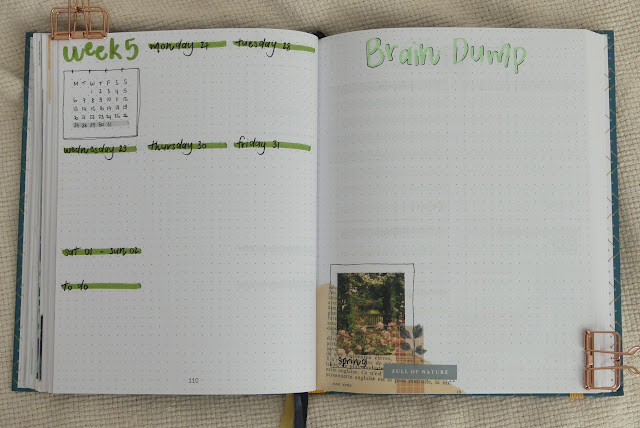 week 5
monday 27
tuesday 28
M T W T F S S
1 2 3 4 5
6 7 8 9 10 11 12
13 14 15 16 17 18 19
20 21 22 23 24 25 26
27 28 29 30 31
wednesday 29
thursday 30
friday 31
sat 01 - sun 02
to do
110
Brain Dump
Spring
FULL OF NATURE